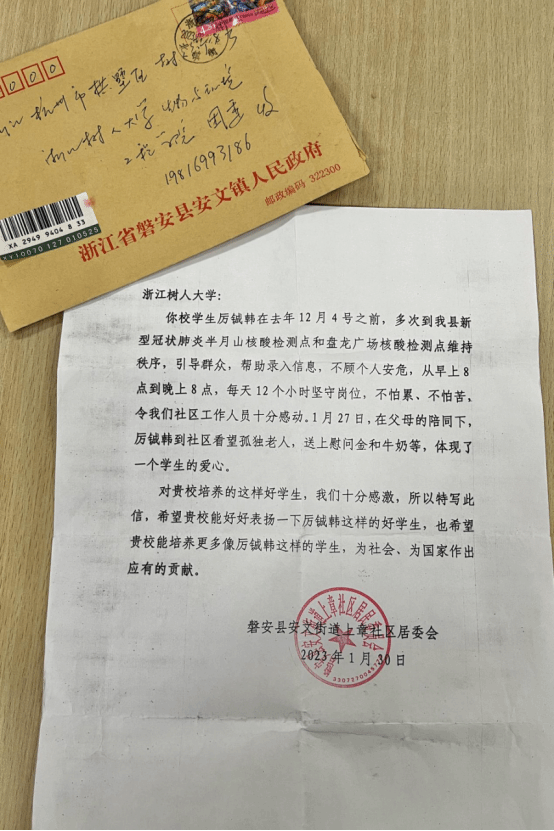 0000
杭州市拱墅区树
浙江树人大学 生物与环境
工程学院
收
19816993186
浙江省磐安县安文镇人民政府
邮政编码 322300
XA 2949 9404 8 33
浙江树人大学：
你校学生厉铖韩在去年12月4号之前，多次到我县新
型冠状肺炎半月山核酸检测点和盘龙广场核酸检测点维持
秩序，引导群众，帮助录入信息，不顾个人安危，从早上8
点到晚上8点，每天12个小时坚守岗位，不怕累、不怕苦。
令我们社区工作人员十分感动。1月27日，在父母的陪同下，
厉铖韩到社区看望孤独老人，送上慰问金和牛奶等，体现了
一个学生的爱心。
对贵校培养的这样好学生，我们十分感激，所以特写此
信，希望贵校能好好表扬一下厉铖韩这样的好学生，也希望
贵校能培养更多像厉铖韩这样的学生，为社会、为国家作出
应有的贡献。
磐安县安文街道上章社区居委会
2023年1月30日